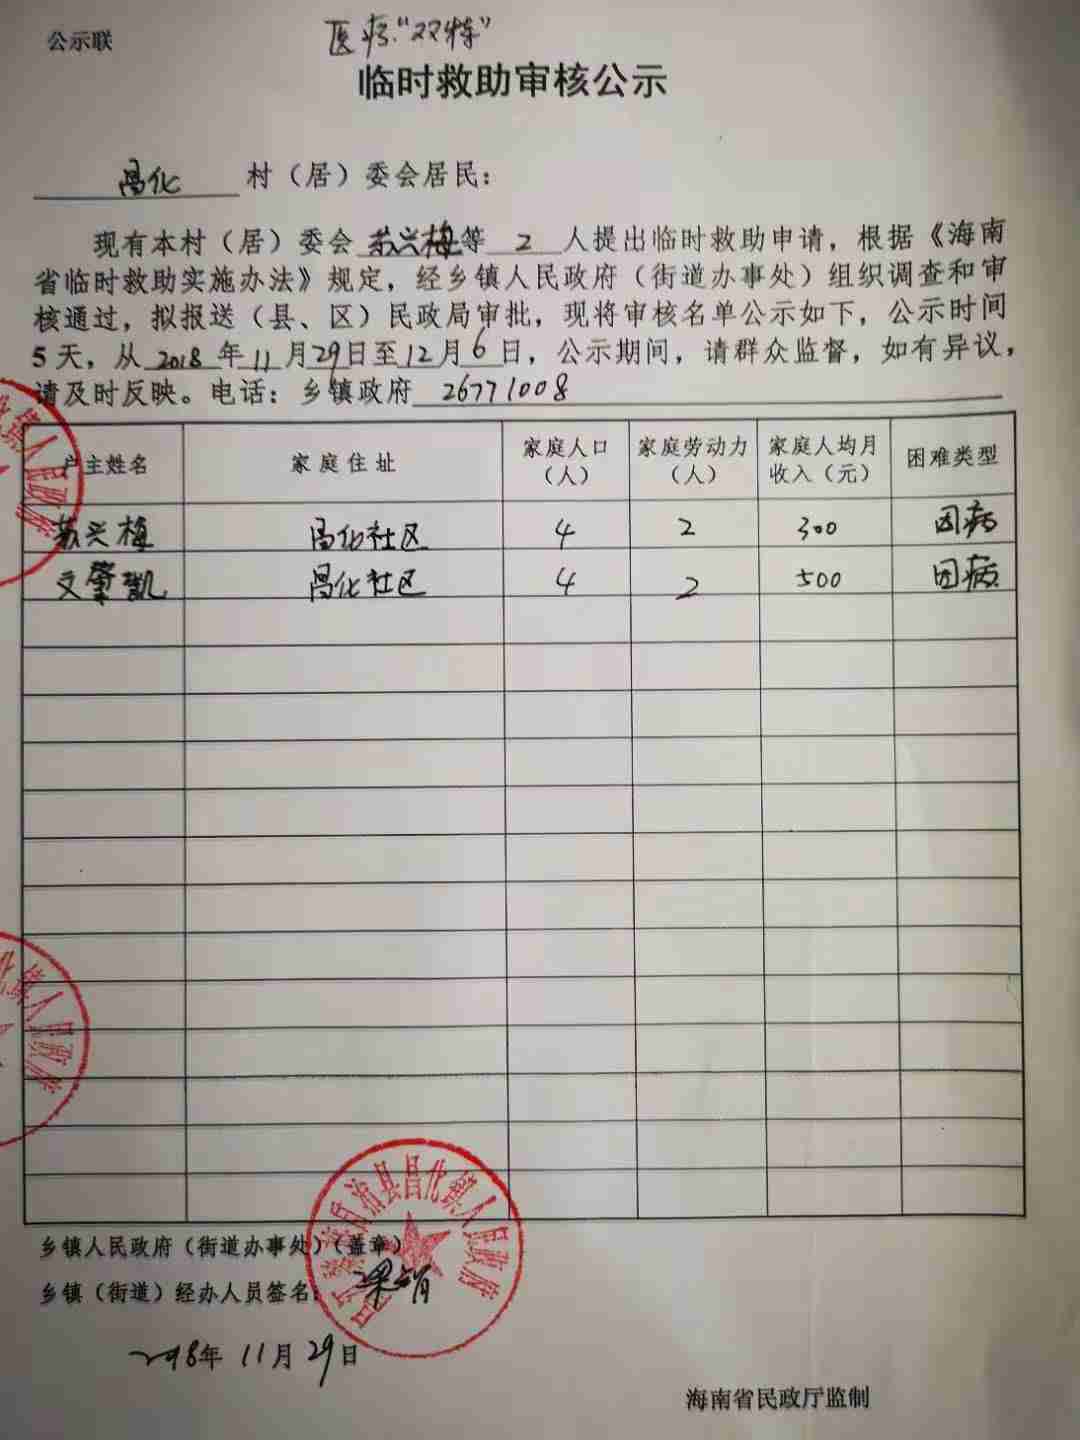 公示联
医疗“双特”
临时救助审核公示
昌化 村（居）委会居民：
现有本村（居）委会 苏兴梅等 2 人提出临时救助申请，根据《海南
省临时救助实施办法》规定，经乡镇人民政府（街道办事处）组织调查和审
核通过，拟报送（县、区）民政局审批，现将审核名单公示如下，公示时间
5 天，从 2018 年 11 月 29 日至 12 月 6 日，公示期间，请群众监督，如有异议，
请及时反映。电话：乡镇政府 26771008
户主姓名 家庭住址 家庭人口（人） 家庭劳动力（人） 家庭人均月收入（元） 困难类型
苏兴梅 昌化社区 4 2 300 因病
文肇凯 昌化社区 4 2 500 因病
乡镇人民政府（街道办事处）（盖章）
乡镇（街道）经办人员签名：
2018年 11月 29日
海南省民政厅监制